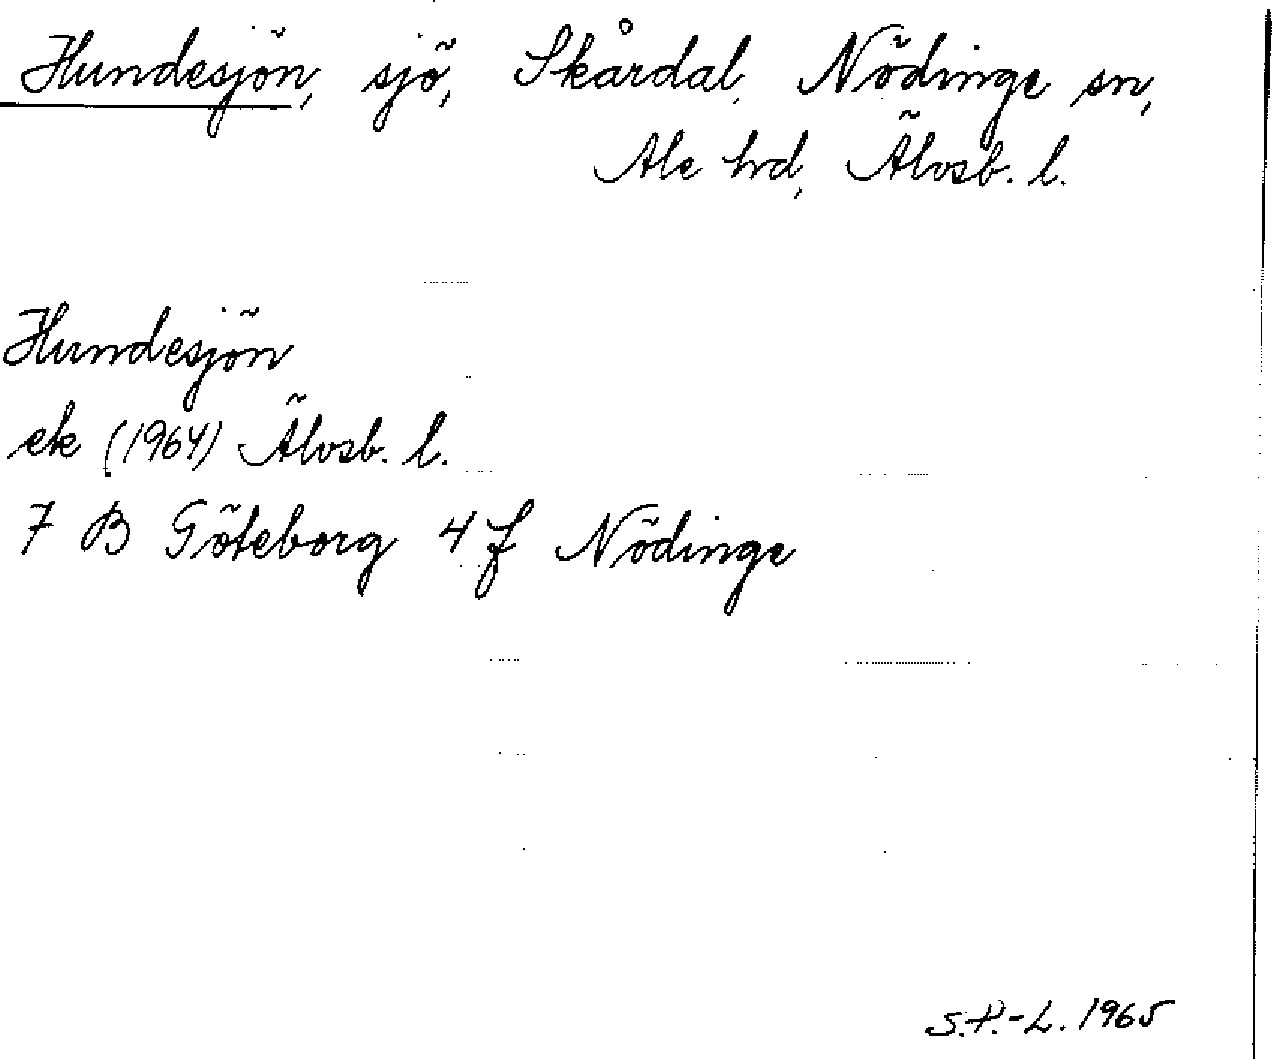 Hundesjön, sjö, Skårdal, Nödinge sn,
Ale hrd, Älvsb. l.
Hundesjön
ek (1964) Älvsb. l.
7 B Göteborg 4 f Nödinge
S.P.-L. 1965